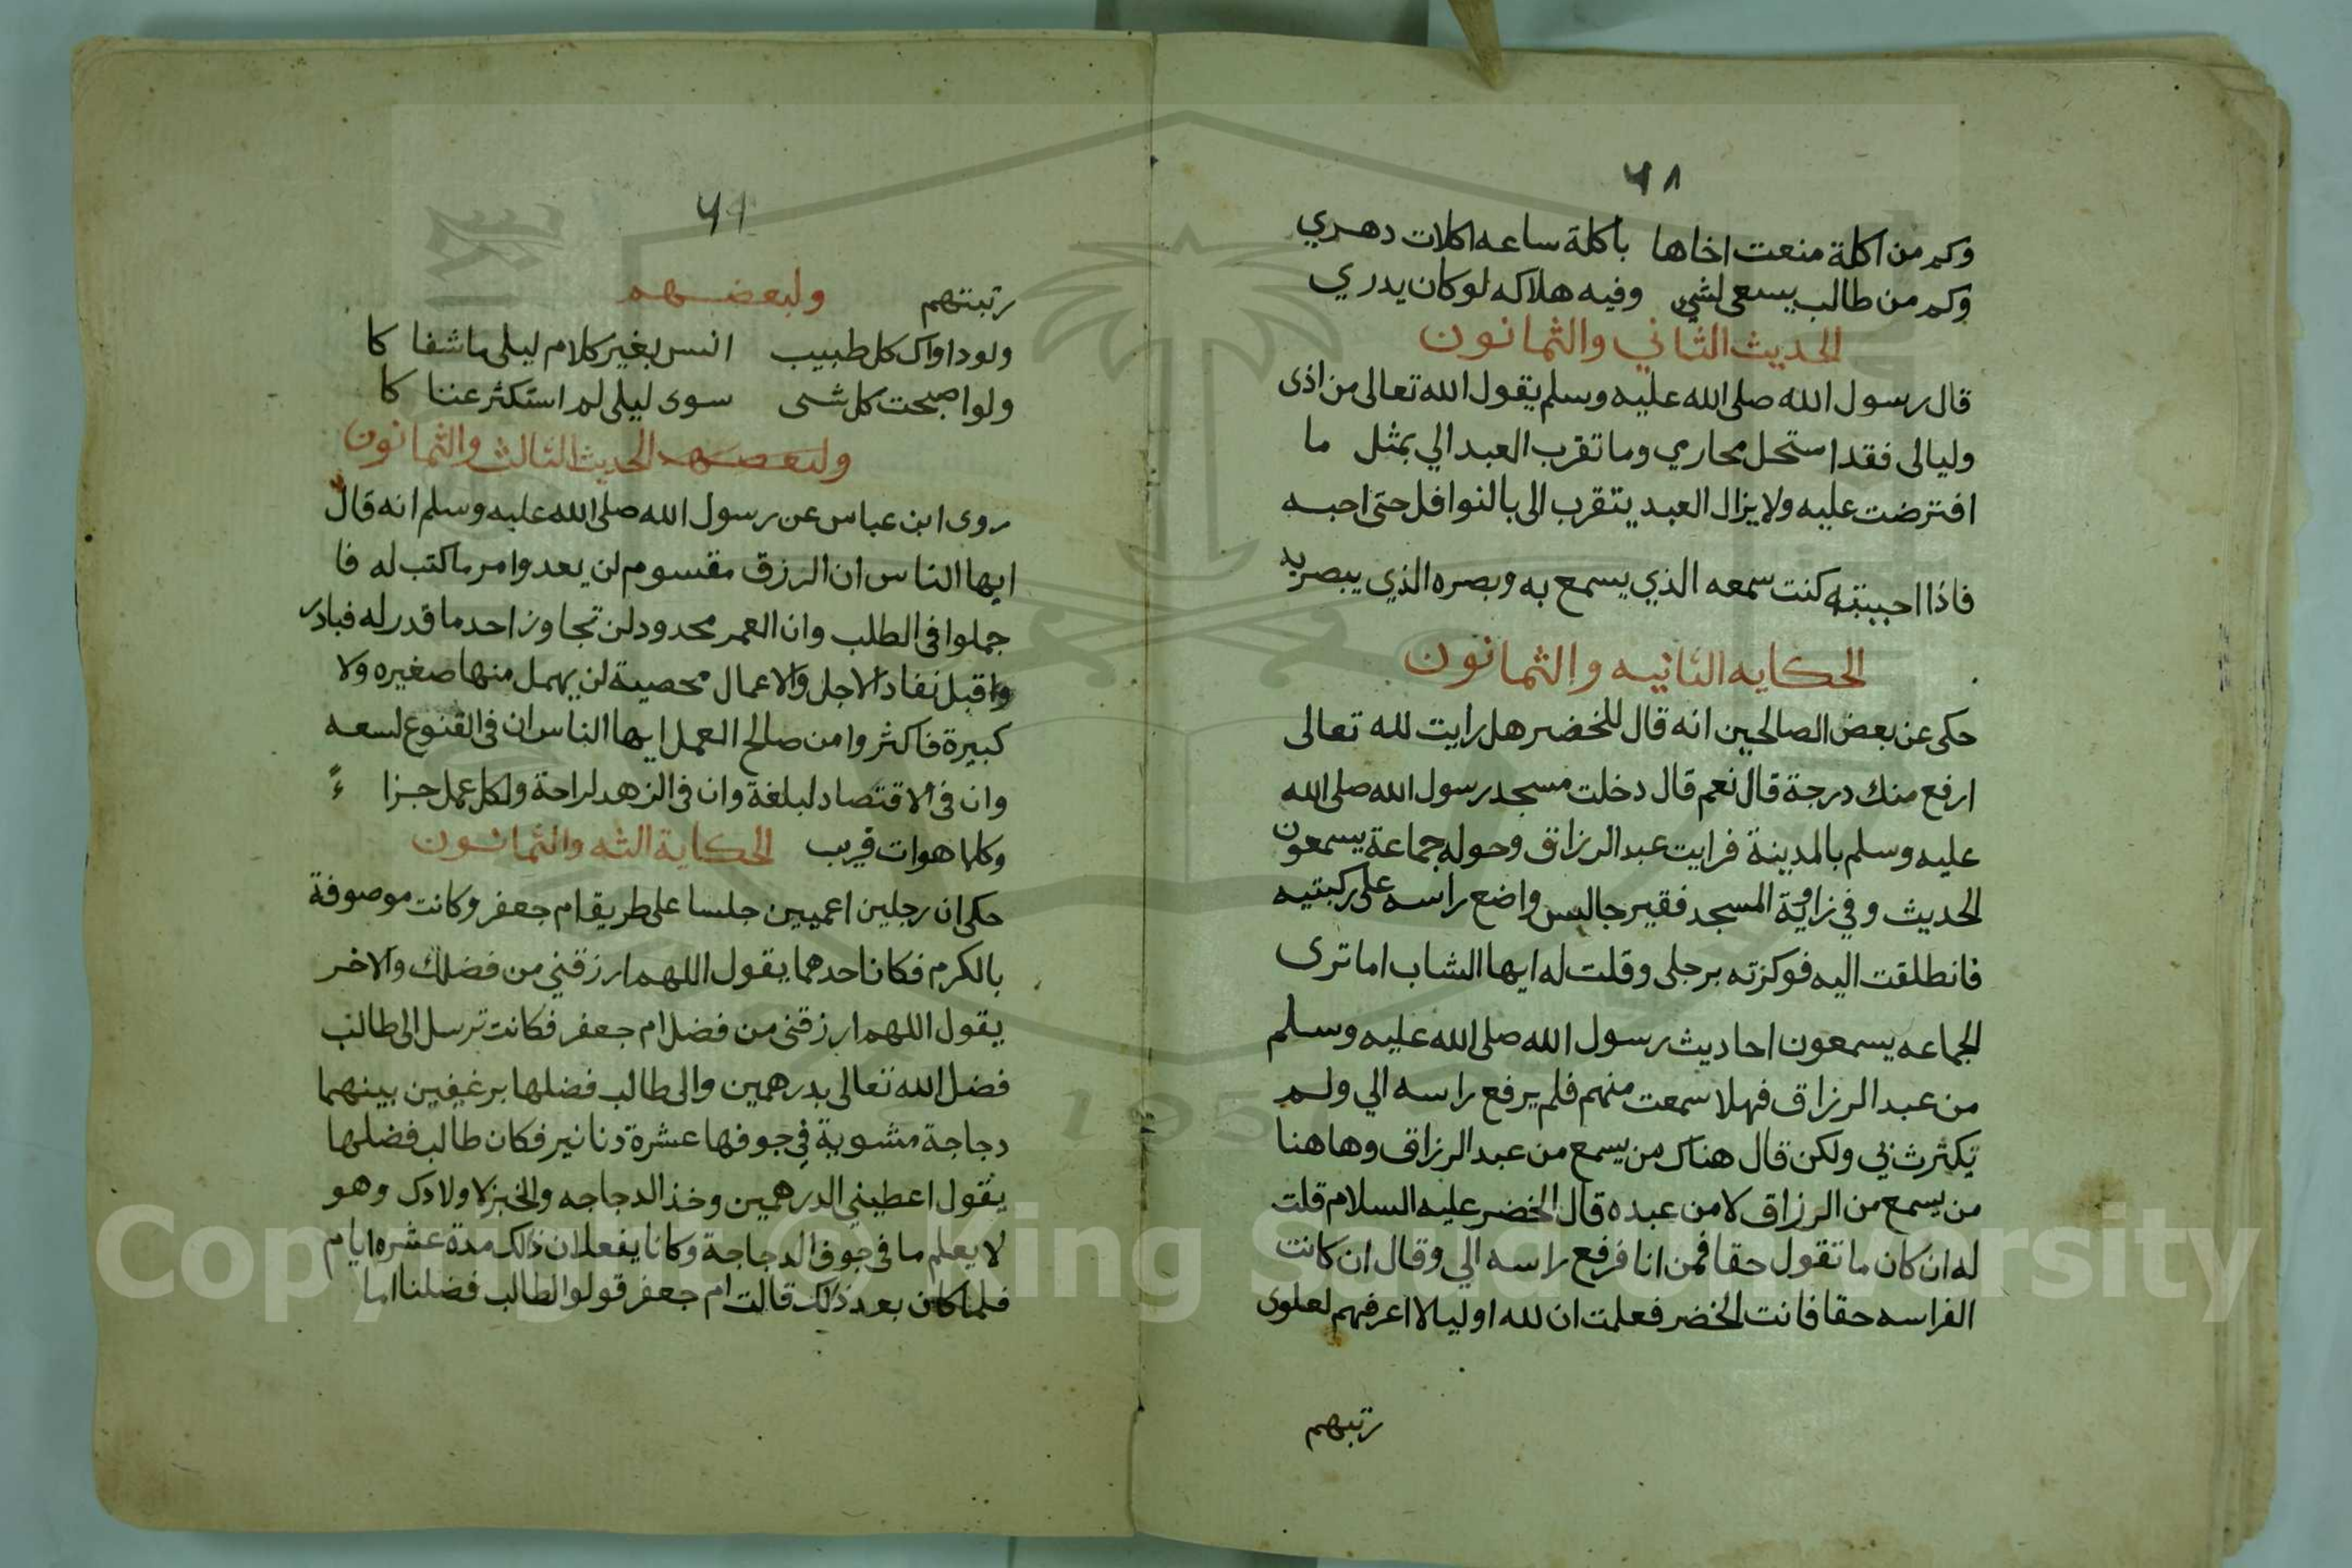 ٦٨
وكم من اكلة منعت اخاها باكلة ساعه اكلات دهري
وكم من طالب يسعى لشي وفيه هلاكه لو كان يدري
الحديث الثاني والثمانون
قال رسول الله صلى الله عليه وسلم يقول الله تعالى من اذى
وليا لى فقد استحل محاربي وما تقرب العبد الي بمثل ما
افترضت عليه ولا يزال العبد يتقرب الى بالنوافل حتى احبه
فاذا احببته كنت سمعه الذي يسمع به وبصره الذي يبصر به
الحكايه الثانيه والثمانون
حكى عن بعض الصالحين انه قال للخضر هل رايت لله تعالى
ارفع منك درجة قال نعم قال دخلت مسجد رسول الله صلى الله
عليه وسلم بالمدينة فرايت عبد الرزاق وحوله جماعة يسمعون
الحديث وفي زاوية المسجد فقير جالس واضع راسه على ركبتيه
فانطلقت اليه فوكزته برجلى وقلت له ايها الشاب اما ترى
الجماعه يسمعون احاديث رسول الله صلى الله عليه وسلم
من عبد الرزاق فهلا سمعت منهم فلم يرفع راسه الي ولم
يكثرث بي ولكن قال هناك من يسمع من عبد الرزاق وهاهنا
من يسمع من الرزاق لا من عبده قال الخضر عليه السلام قلت
له ان كان ما تقول حقا فمن انا فرفع راسه الي وقال ان كانت
الفراسه حقا فانت الخضر فعلمت ان لله اوليا لا اعرفهم لعلوى
رتبهم
٦٩
رتبتهم ولبعضهم
ولو داواك كل طبيب انس بغير كلام ليلى ما شفا كا
ولو اصبحت كل شى سوى ليلى لم استكثر عننا كا
ولبعضهم الحديث الثالث والثمانون
روى ابن عباس عن رسول الله صلى الله عليه وسلم انه قال
ايها الناس ان الرزق مقسوم لن يعدوا امر ما كتب له فا
جملوا فى الطلب وان العمر محدود لن تجاوز احد ما قدر له فبادر
وا قبل نفاد الاجل والاعمال محصية لن يهمل منها صغيره ولا
كبيرة فاكثروا من صالح العمل ايها الناس ان فى القنوع لسعه
وان فى الاقتصاد لبلغة وان فى الزهد لراحة ولكل عمل جزا ءً
وكلما هوات قريب الحكاية الثه والثمانون
حكى ان رجلين اعميين جلسا على طريق ام جعفر وكانت موصوفة
بالكرم فكان احدهما يقول اللهم ارزقني من فضلك والاخر
يقول اللهم ارزقنى من فضل ام جعفر فكانت ترسل الى طالب
فضل الله تعالى بدرهمين والى طالب فضلها برغيفين بينهما
دجاجة مشوية في جوفها عشرة دنانير فكان طالب فضلها
يقول اعطيني الدرهمين وخذ الدجاجه والخبز لاولادك وهو
لا يعلم ما فى جوف الدجاجة وكانا يفعلان ذلك مدة عشره ايام
فلما كان بعد ذلك قالت ام جعفر قولوا لطالب فضلنا اما
Copyright © King Saud University
1957